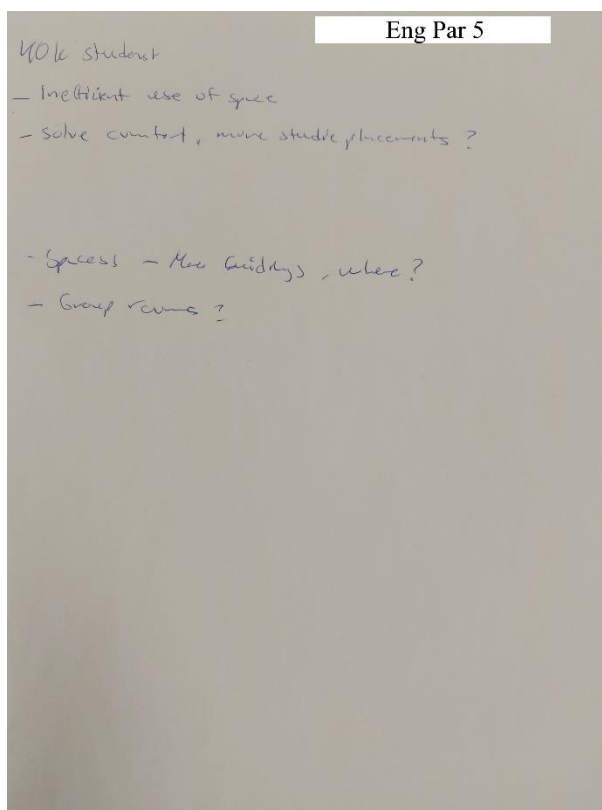 Eng Par 5
40k student
- Inefficient use of space
- Solve comfort, more studie placements ?
- Spaces - More buildings, where ?
- Group rooms ?